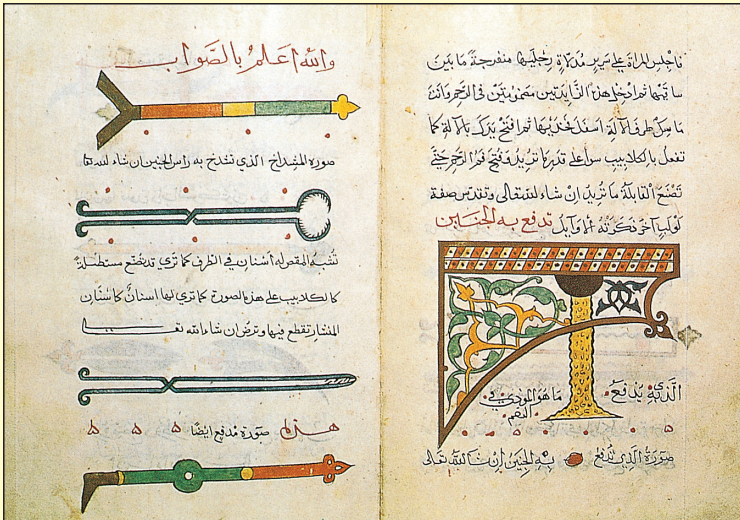 فاجلس المراة على سرير مدلاة رجليها منفرجة ما بين
ساقيها ثم ادخل هذه الزايدتين مضمومتين في الرحم وانت
ماسك طرف الالة اسفل فخذيها ثم افتح يدك بالالة كما
تفعل بالكلاليب سوا على قدر ما تريد فتح فم الرحم حتى
تصنع القابلة ما تريد ان شا الله تعالى وتقدس صفة
لولب آخر ذكرته الاوايل تدفع به الجنين
الذي يدفع به ما هو الموذي في
صورة الذي تدفع به الجنين ان شا الله تعالى
والله اعلم بالصواب
صورة المشداخ الذي تشدخ به راس الجنين ان شاء الله تعا
تشبه المقص له اسنان في الطرف كما تري وقد يصنع مستطيلا
كالكلاليب على هذه الصورة كما تري لها اسنان كاسنان
المنشار تقطع فيها وترض ان شاء الله تعــــالى
هذه صورة مدفع ايضا ه ه ه